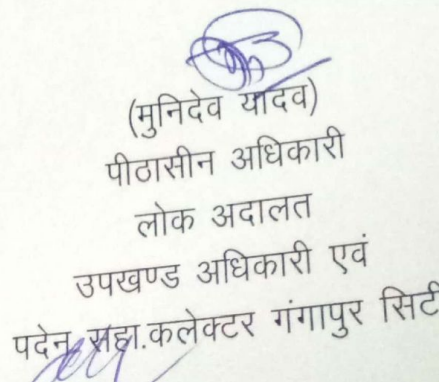 (मुनिदेव यादव)
पीठासीन अधिकारी
लोक अदालत
उपखण्ड अधिकारी एवं
पदेन सहा.कलेक्टर गंगापुर सिटी